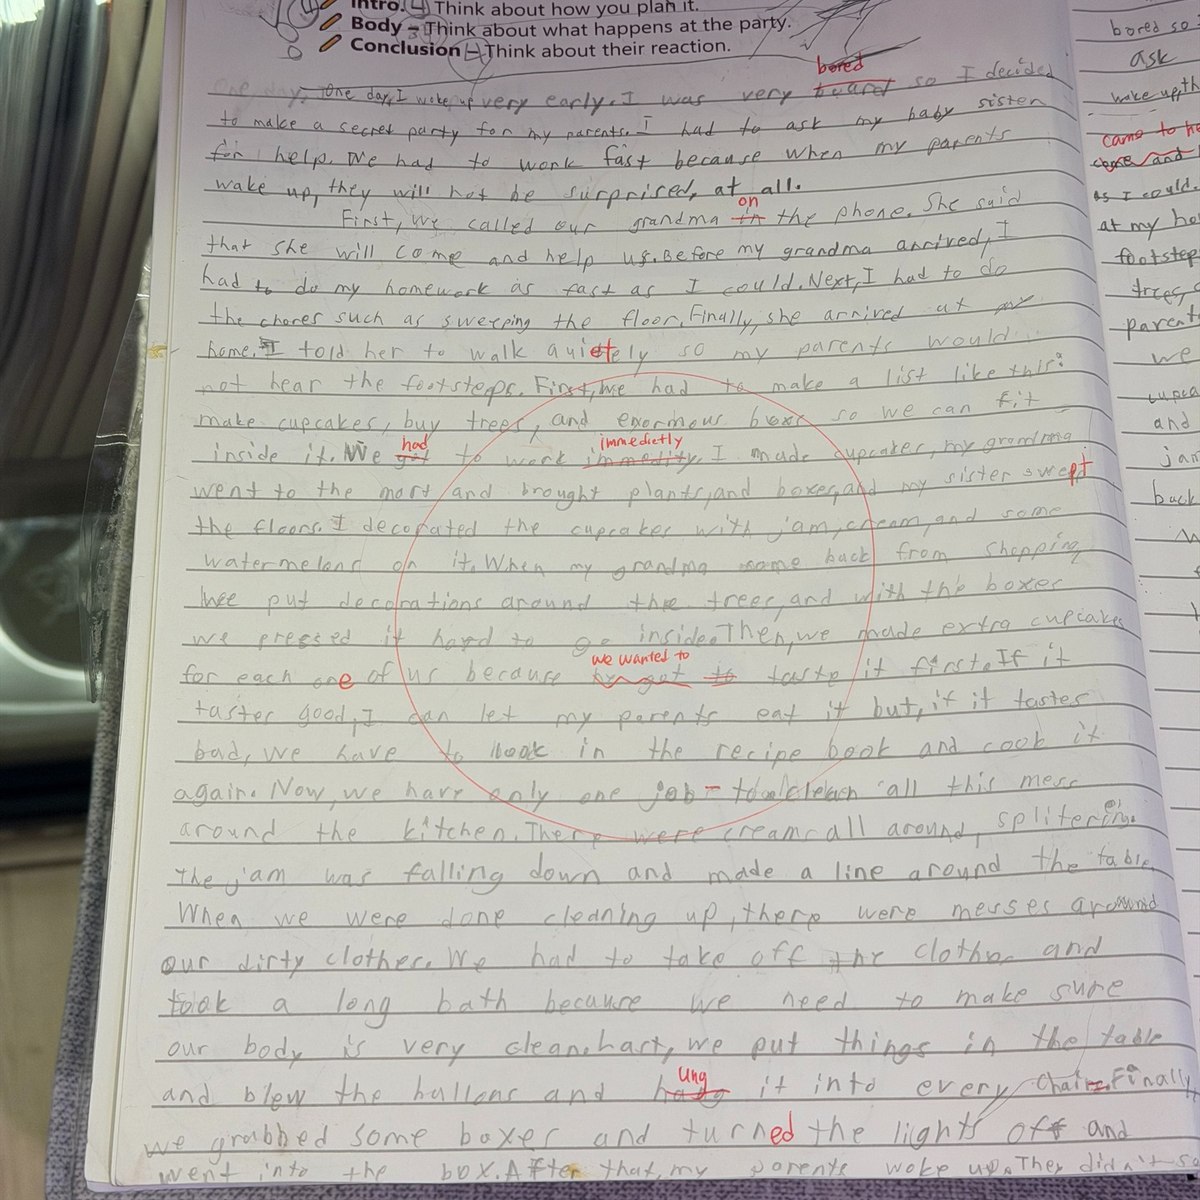 Intro. - Think about how you plan it.
Body - Think about what happens at the party.
Conclusion - Think about their reaction.
bored
One day, I woke up very early. I was very so I decided
to make a secret party for my parents. I had to ask my baby sister
for help. We had to work fast because when my parents
wake up, they will not be surprised, at all.
on
First, we called our grandma in the phone. She said
that she will come and help us. Before my grandma arrived, I
had to do my homework as fast as I could. Next, I had to do
the chores such as sweeping the floor. Finally, she arrived at my
home. I told her to walk quietely so my parents would
not hear the footsteps. First, we had to make a list like this:
make cupcakes, buy trees, and enormous boxs so we can fit
had immedietly
inside it. We got to work immedity. I made cupcakes, my grandma
went to the mart and brought plants, and boxes, and my sister swept
the floors. I decorated the cupcakes with jam, cream, and some
watermelons on it. When my grandma came back from shopping,
we put decorations around the trees, and with the boxes
we pressed it hard to go inside. Then, we made extra cupcakes
we wanted to
for each one of us because to taste it first. If it
tastes good, I can let my parents eat it but, if it tastes
bad, we have to look in the recipe book and cook it
again. Now, we have only one job - to clean all this mess
around the kitchen. There were creams all around, splitering.
The jam was falling down and made a line around the table.
When we were done cleaning up, there were messes around
our dirty clothes. We had to take off the clothes and
took a long bath because we need to make sure
our body is very clean. we put things in the table
ung
and blew the ballons and hang it into every chair. Finally,
we grabbed some boxes and turned the lights off and
went into the box. After that, my parents woke up. They didn't
bored so
ask
wake up, th
came to ho
come and
as I could.
at my ho
footstep
trees,
parent
we
cupca
and
jam
back